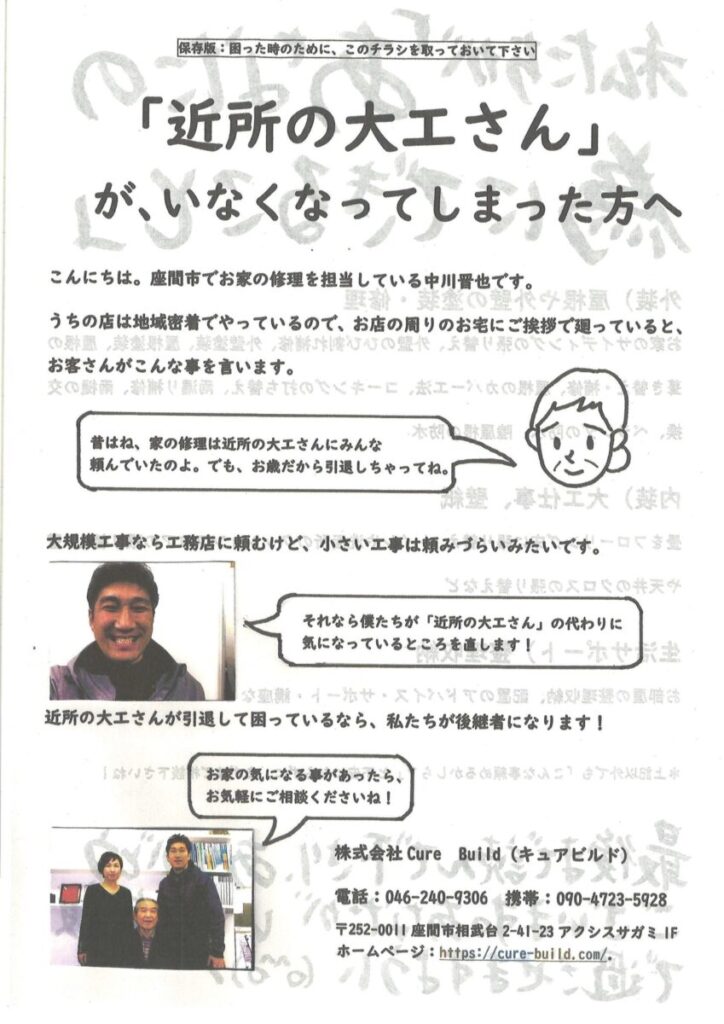 保存版：困った時のために、このチラシを取っておいて下さい
「近所の大工さん」
が、いなくなってしまった方へ
こんにちは。座間市でお家の修理を担当している中川晋也です。
うちの店は地域密着でやっているので、お店の周りのお宅にご挨拶で廻っていると、
お客さんがこんな事を言います。
昔はね、家の修理は近所の大工さんにみんな
頼んでいたのよ。でも、お歳だから引退しちゃってね。
大規模工事なら工務店に頼むけど、小さい工事は頼みづらいみたいです。
それなら僕たちが「近所の大工さん」の代わりに
気になっているところを直します！
近所の大工さんが引退して困っているなら、私たちが後継者になります！
お家の気になる事があったら、
お気軽にご相談くださいね！
株式会社Cure Build（キュアビルド）
電話：046-240-9306 携帯：090-4723-5928
〒252-0011 座間市相武台 2-41-23 アクシスサガミ 1F
ホームページ：https://cure-build.com/.